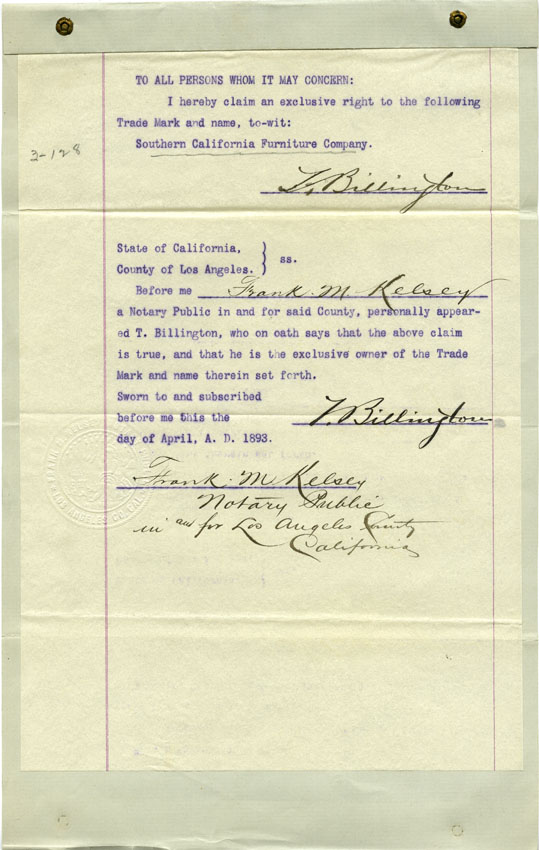 TO ALL PERSONS WHOM IT MAY CONCERN:
I hereby claim an exclusive right to the following
Trade Mark and name, to-wit:
Southern California Furniture Company.
3-128
T. Billington
State of California,
County of Los Angeles. } ss.
Before me Frank M Kelsey
a Notary Public in and for said County, personally appear-
ed T. Billington, who on oath says that the above claim
is true, and that he is the exclusive owner of the Trade
Mark and name therein set forth.
Sworn to and subscribed
before me this the T. Billington
day of April, A. D. 1893.
Frank M Kelsey
Notary Public
in and for Los Angeles County
California